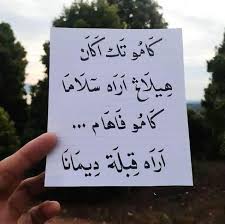 كَامُو تَق أَكَن
هِيلَاڠ أَرَاه سَلَامَا
كَامُو فَاهَام ...
أَرَاه قِبْلَة دِيمَانَا